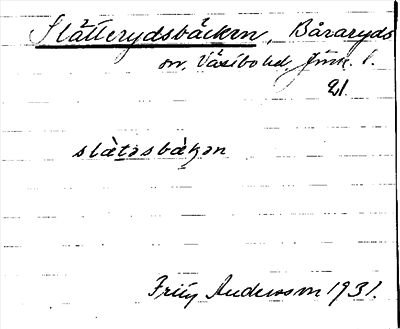 Slätterydsbäcken, Båraryds
sn, Västbo hd, Jönk. l.
21.
slàtəsbàkən
Fritz Andersson 1931.